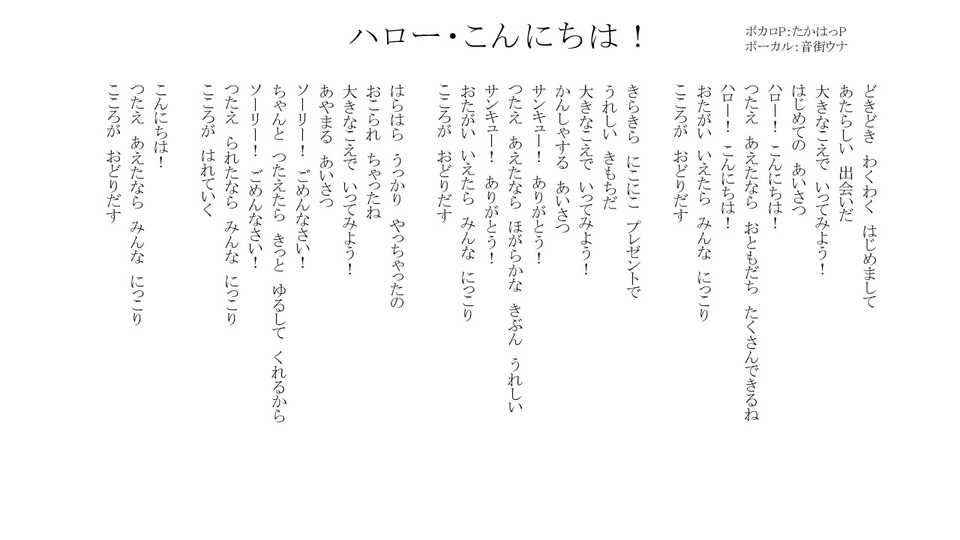 ハロー・こんにちは！
ボカロP：たかはっP
ボーカル：音街ウナ
どきどき わくわく はじめまして
あたらしい 出会いだ
大きなこえで いってみよう！
はじめての あいさつ
ハロー！ こんにちは！
つたえ あえたなら おともだち たくさんできるね
ハロー！ こんにちは！
おたがい いえたら みんな にっこり
こころが おどりだす
きらきら にこにこ プレゼントで
うれしい きもちだ
大きなこえで いってみよう！
かんしゃする あいさつ
サンキュー！ ありがとう！
つたえ あえたなら ほがらかな きぶん うれしい
サンキュー！ ありがとう！
おたがい いえたら みんな にっこり
こころが おどりだす
はらはら うっかり やっちゃったの
おこられ ちゃったね
大きなこえで いってみよう！
あやまる あいさつ
ソーリー！ ごめんなさい！
ちゃんと つたえたら きっと ゆるして くれるから
ソーリー！ ごめんなさい！
つたえ られたなら みんな にっこり
こころが はれていく
こんにちは！
つたえ あえたなら みんな にっこり
こころが おどりだす